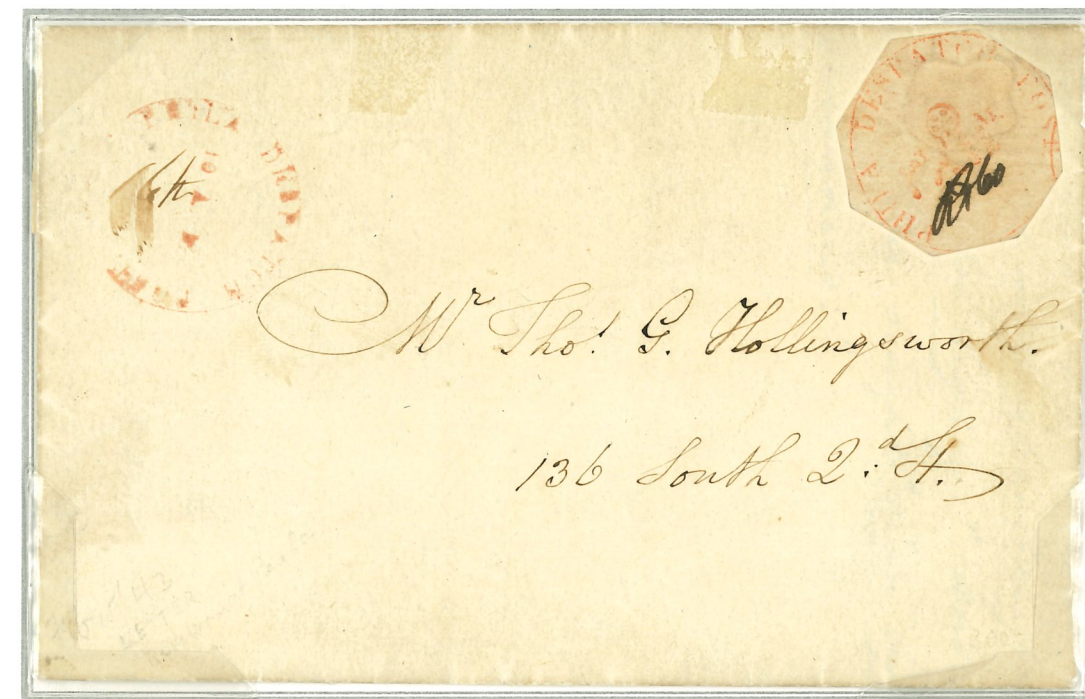 PHILA DESPATCH POST
PHILA DESPATCH POST
10
Mr Thos. G. Hollingsworth.
136 South 2.d St.